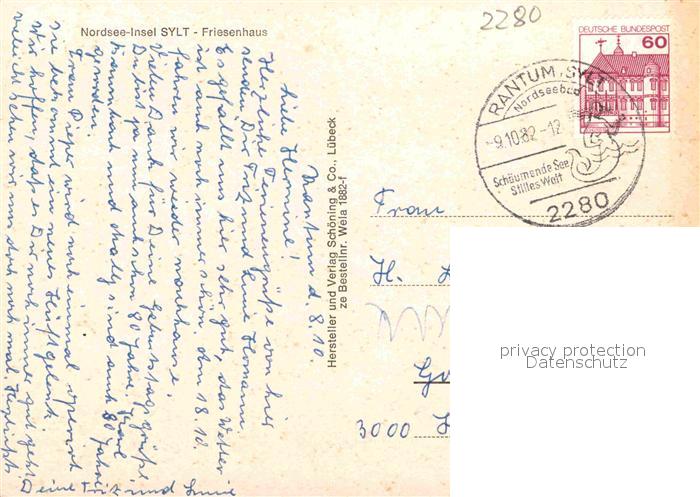 Nordsee-Insel SYLT - Friesenhaus
2280
DEUTSCHE BUNDESPOST
60
RANTUM, SYLT
Nordseebad
-9.10.82-12
Schäumende See
Stilles Welt
2280
Rantum d. 8.10.
Liebe Hermine!
Herzliche Feriengrüße von hier
senden Dir Fritz und Hermann
Es gefällt uns hier sehr gut, das Wetter
ist auch noch immer schön, am 18.10.
fahren wir wieder nachhause.
Vielen Dank für Deine Geburtstagsgrüße
Du bist ja nun auch schon 80 Jahre,
und sind auch 80 Jahre
geworden.
Frau Pieper wird noch einmal operiert
sie bekommt ein neues Hüftgelenk.
Wir hoffen, daß es Dir noch immer gut geht
vieleicht sehen wir uns doch noch mal.
Deine Fritz und
Hersteller und Verlag Schöning & Co., Lübeck
ze Bestellnr. Wela 1882-f
Frau
H.
3000
privacy protection
Datenschutz